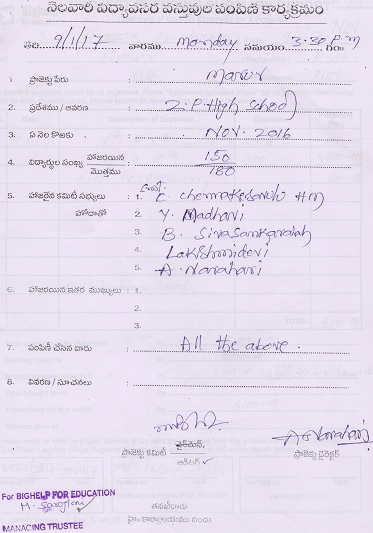 నెలవారీ విద్యావసర వస్తువుల పంపిణీ కార్యక్రమం
తేది 9/1/17 వారము Monday సమయం 3-30 P.m గం॥
1. ప్రాజెక్టు పేరు : Marur
2. ప్రదేశము / ఆవరణ : Z.P. High School
3. ఏ నెల కొఱకు : NOV. 2016
4. విద్యార్థుల సంఖ్య హాజరయిన : 150
మొత్తము 180
5. హాజరైన కమిటి సభ్యులు : 1. C. Chennakesavulu HM
హోదాతో 2. Y. Madhavi
3. B. Sivasankaraiah
4. Lakshmidevi
5. A. Narahari
6. హాజరయిన ఇతర ముఖ్యులు : 1.
2.
3.
7. పంపిణీ చేసిన వారు : All the above.
8. వివరణ / సూచనలు :
A. Narahari
ప్రాజెక్టు కమిటీ ఛైర్మెన్, ప్రాజెక్టు డైరెక్టర్
ఆడిటర్ ✓
For BIGHELP FOR EDUCATION
MANAGING TRUSTEE
తనిఖీదారు